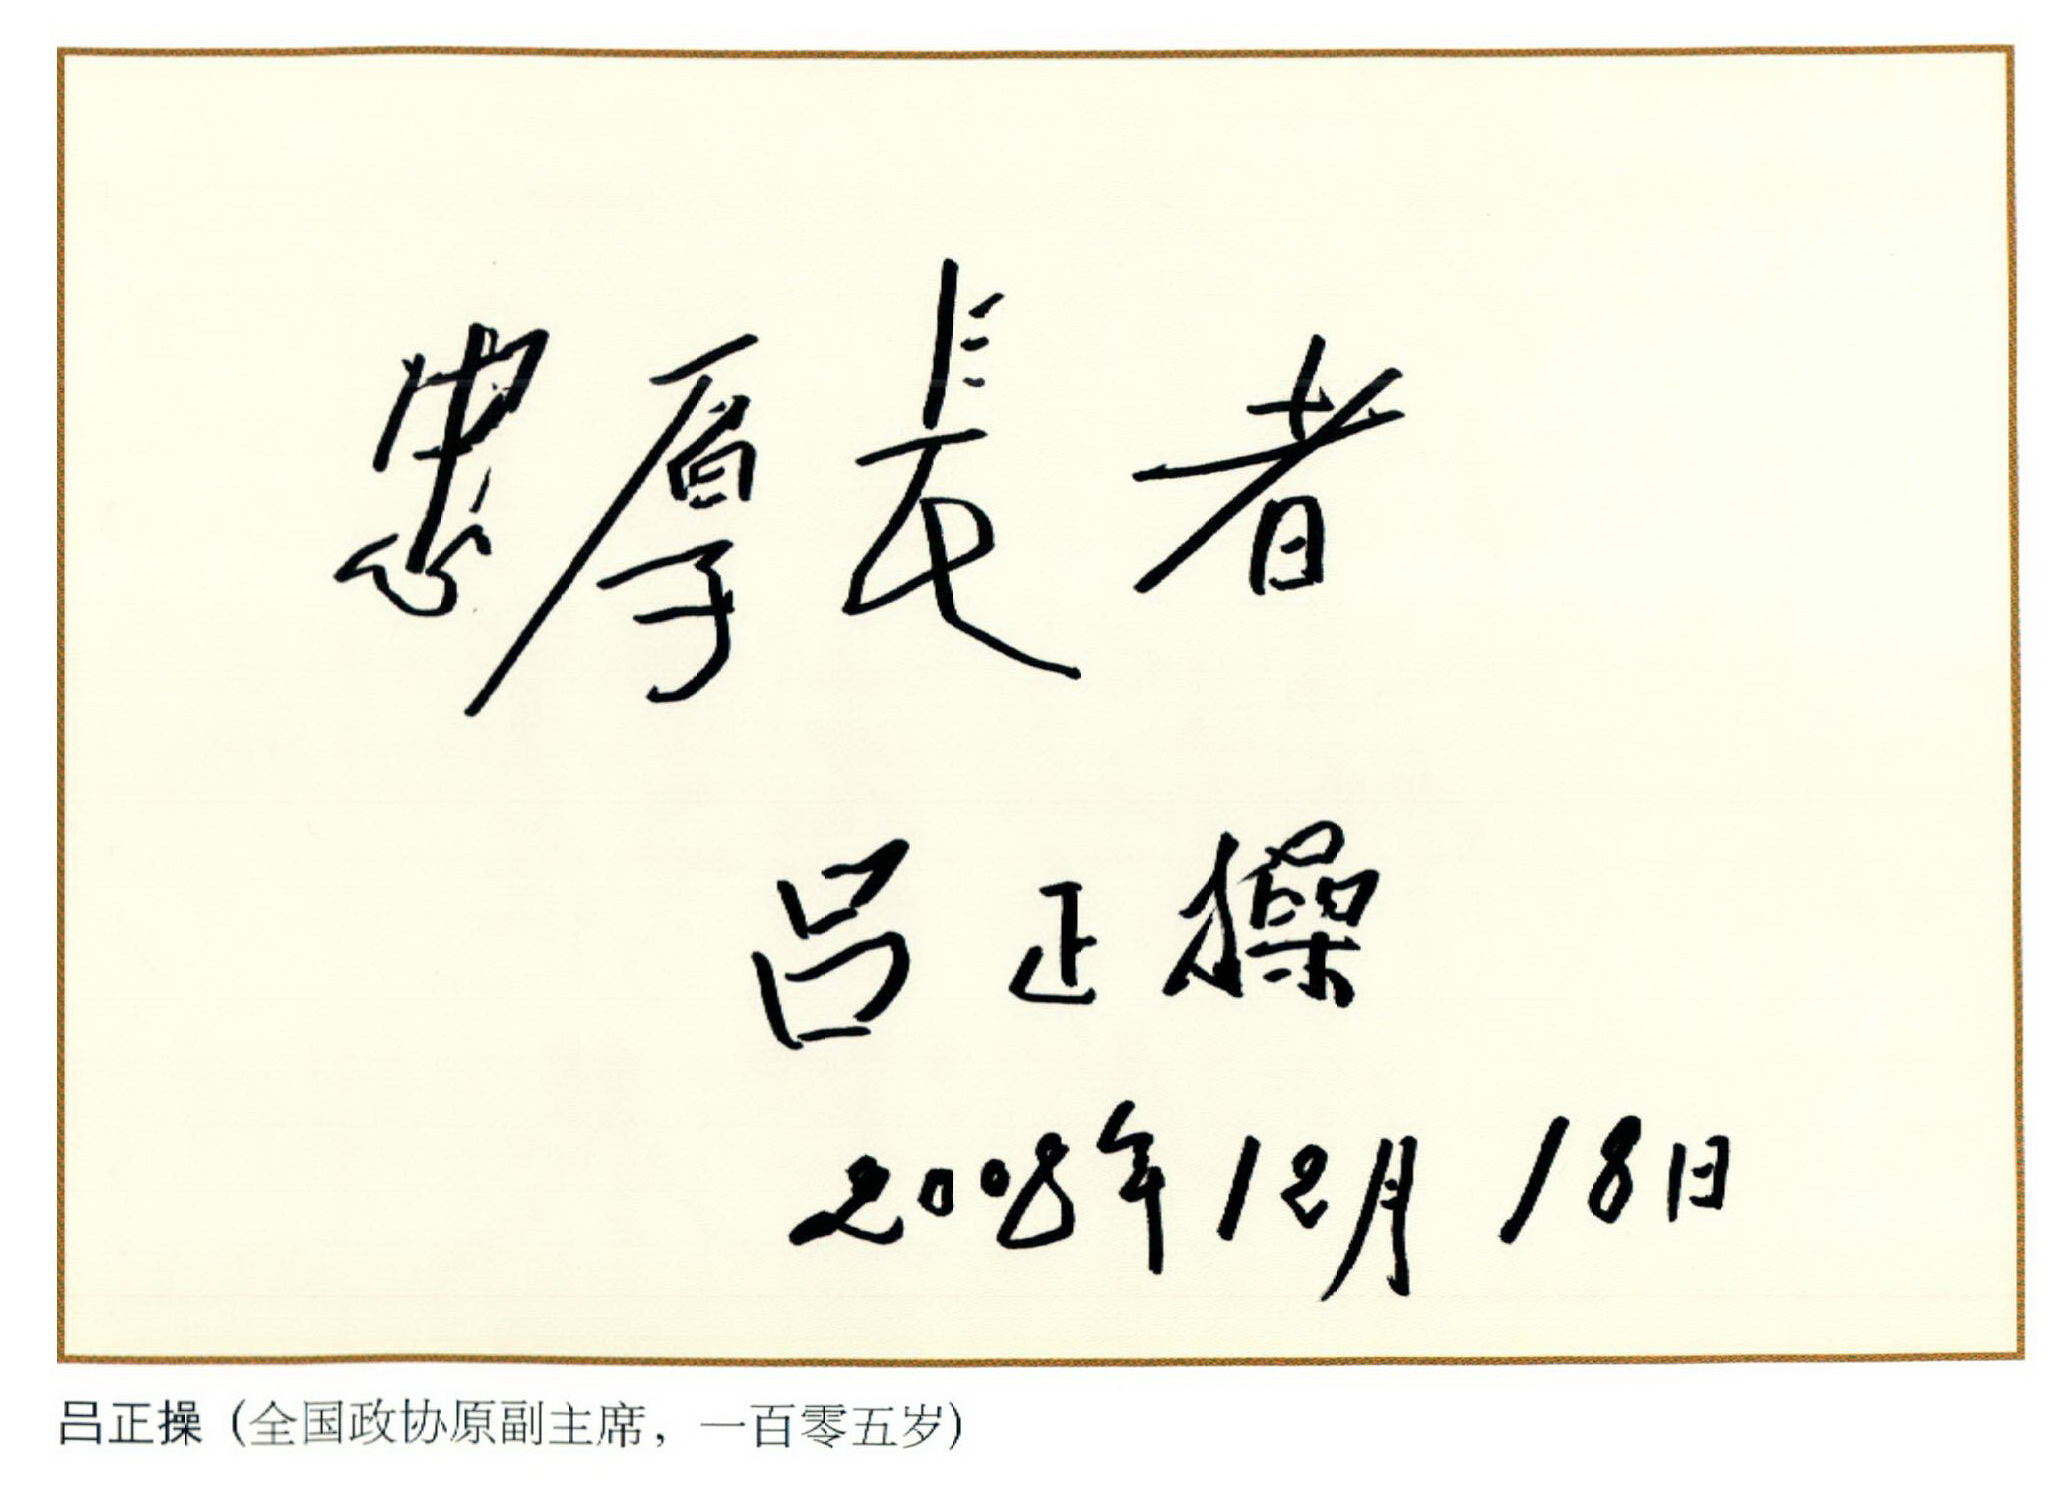 忠厚長者
吕正操
2008年12月18日
吕正操（全国政协原副主席，一百零五岁）